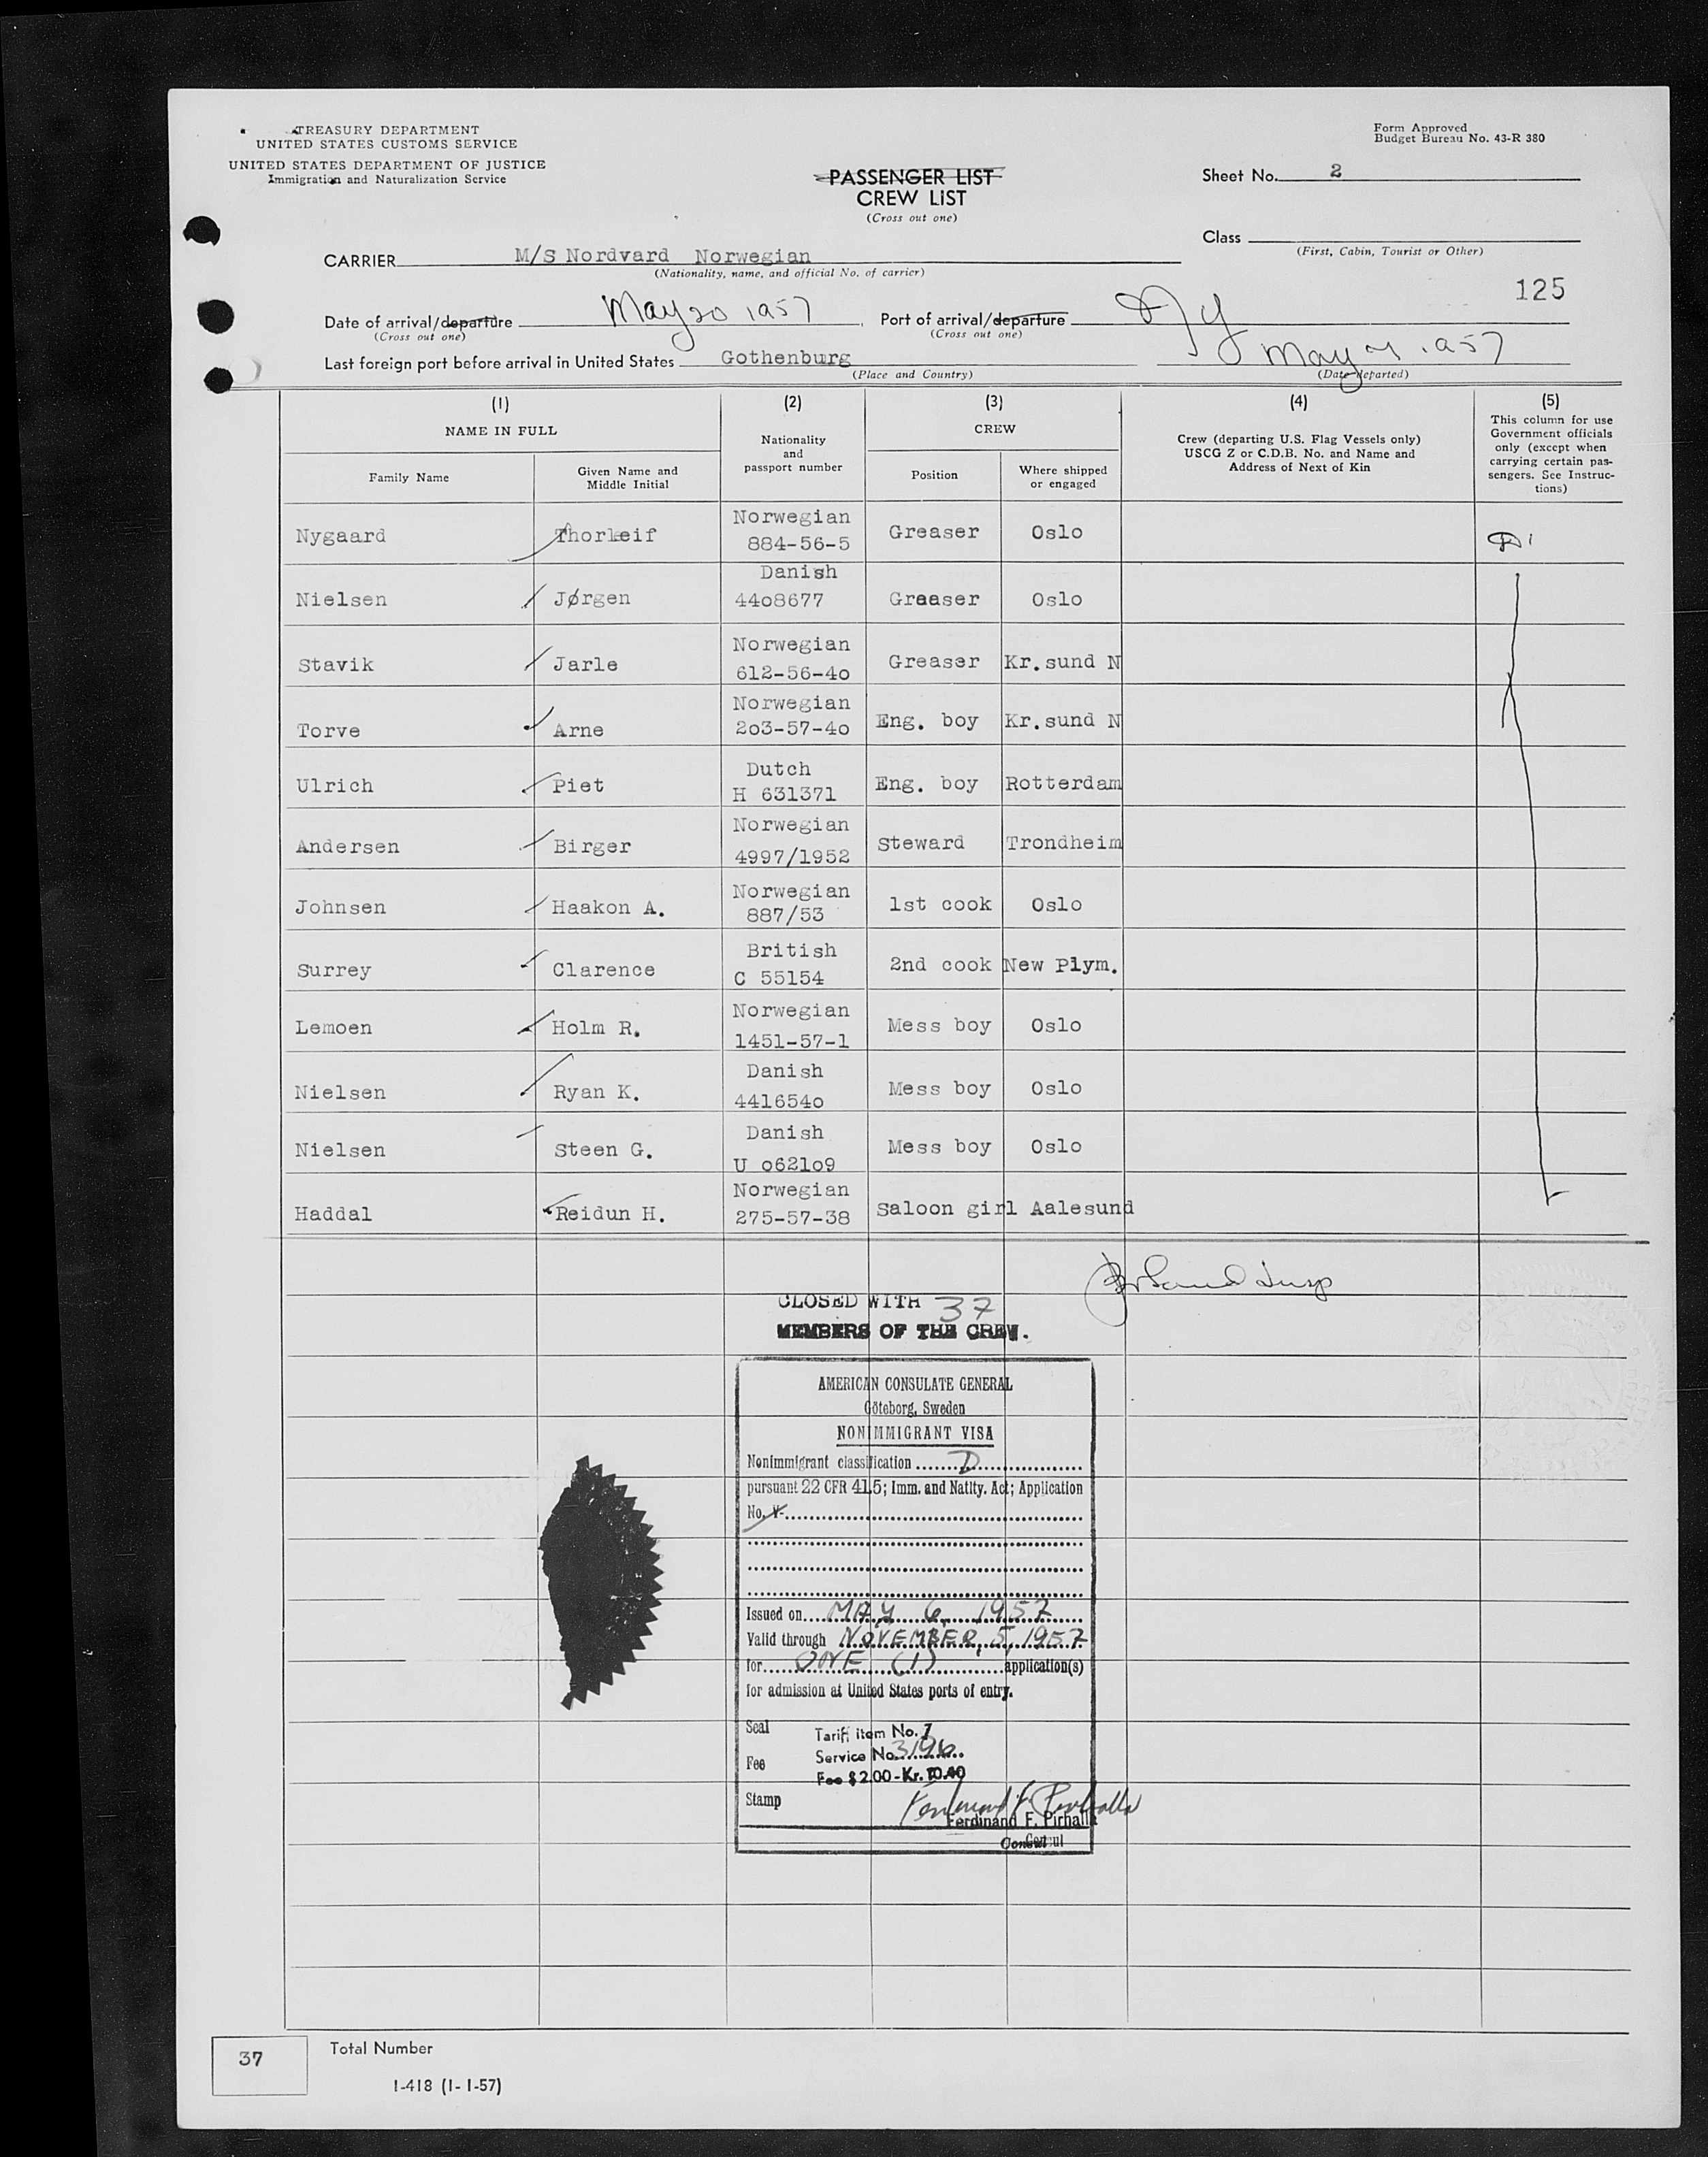 TREASURY DEPARTMENT
UNITED STATES CUSTOMS SERVICE
UNITED STATES DEPARTMENT OF JUSTICE
Immigration and Naturalization Service
Form Approved
Budget Bureau No. 43-R 380
PASSENGER LIST
CREW LIST
(Cross out one)
Sheet No. 2
Class
(First, Cabin, Tourist or Other)
CARRIER M/S Nordvard Norwegian
(Nationality, name, and official No. of carrier)
125
Date of arrival/departure May 20 1957 Port of arrival/departure NY
(Cross out one) (Cross out one)
Last foreign port before arrival in United States Gothenburg May 1957
(Place and Country) (Date departed)
(1) (2) (3) (4) (5)
NAME IN FULL
Family Name
Given Name and
Middle Initial
Nationality
and
passport number
CREW
Position
Where shipped
or engaged
Crew (departing U.S. Flag Vessels only)
USCG Z or C.D.B. No. and Name and
Address of Next of Kin
This column for use
Government officials
only (except when
carrying certain pas-
sengers. See Instruc-
tions)
Nygaard Thorleif Norwegian 884-56-5 Greaser Oslo
Nielsen Jørgen Danish 44o8677 Greaser Oslo
Stavik Jarle Norwegian 612-56-4o Greaser Kr.sund N
Torve Arne Norwegian 2o3-57-4o Eng. boy Kr.sund N
Ulrich Piet Dutch H 631371 Eng. boy Rotterdam
Andersen Birger Norwegian 4997/1952 Steward Trondheim
Johnsen Haakon A. Norwegian 887/53 1st cook Oslo
Surrey Clarence British C 55154 2nd cook New Plym.
Lemoen Holm R. Norwegian 1451-57-1 Mess boy Oslo
Nielsen Ryan K. Danish 441654o Mess boy Oslo
Nielsen Steen G. Danish U o621o9 Mess boy Oslo
Haddal Reidun H. Norwegian 275-57-38 Saloon girl Aalesund
CLOSED WITH 37
MEMBERS OF THE CREW.
AMERICAN CONSULATE GENERAL
Göteborg, Sweden
NONIMMIGRANT VISA
Nonimmigrant classification D
pursuant 22 CFR 41.5; Imm. and Natlty. Act; Application
No. V-
Issued on MAY 6, 1957
Valid through NOVEMBER 5, 1957
for ONE (1) application(s)
for admission at United States ports of entry.
Seal Tariff item No. 7
Fee Service No. 3196
Fee $2.00 - Kr. 10.40
Stamp
Ferdinand F. Pirhalla
Consul
37
Total Number
I-418 (1-1-57)